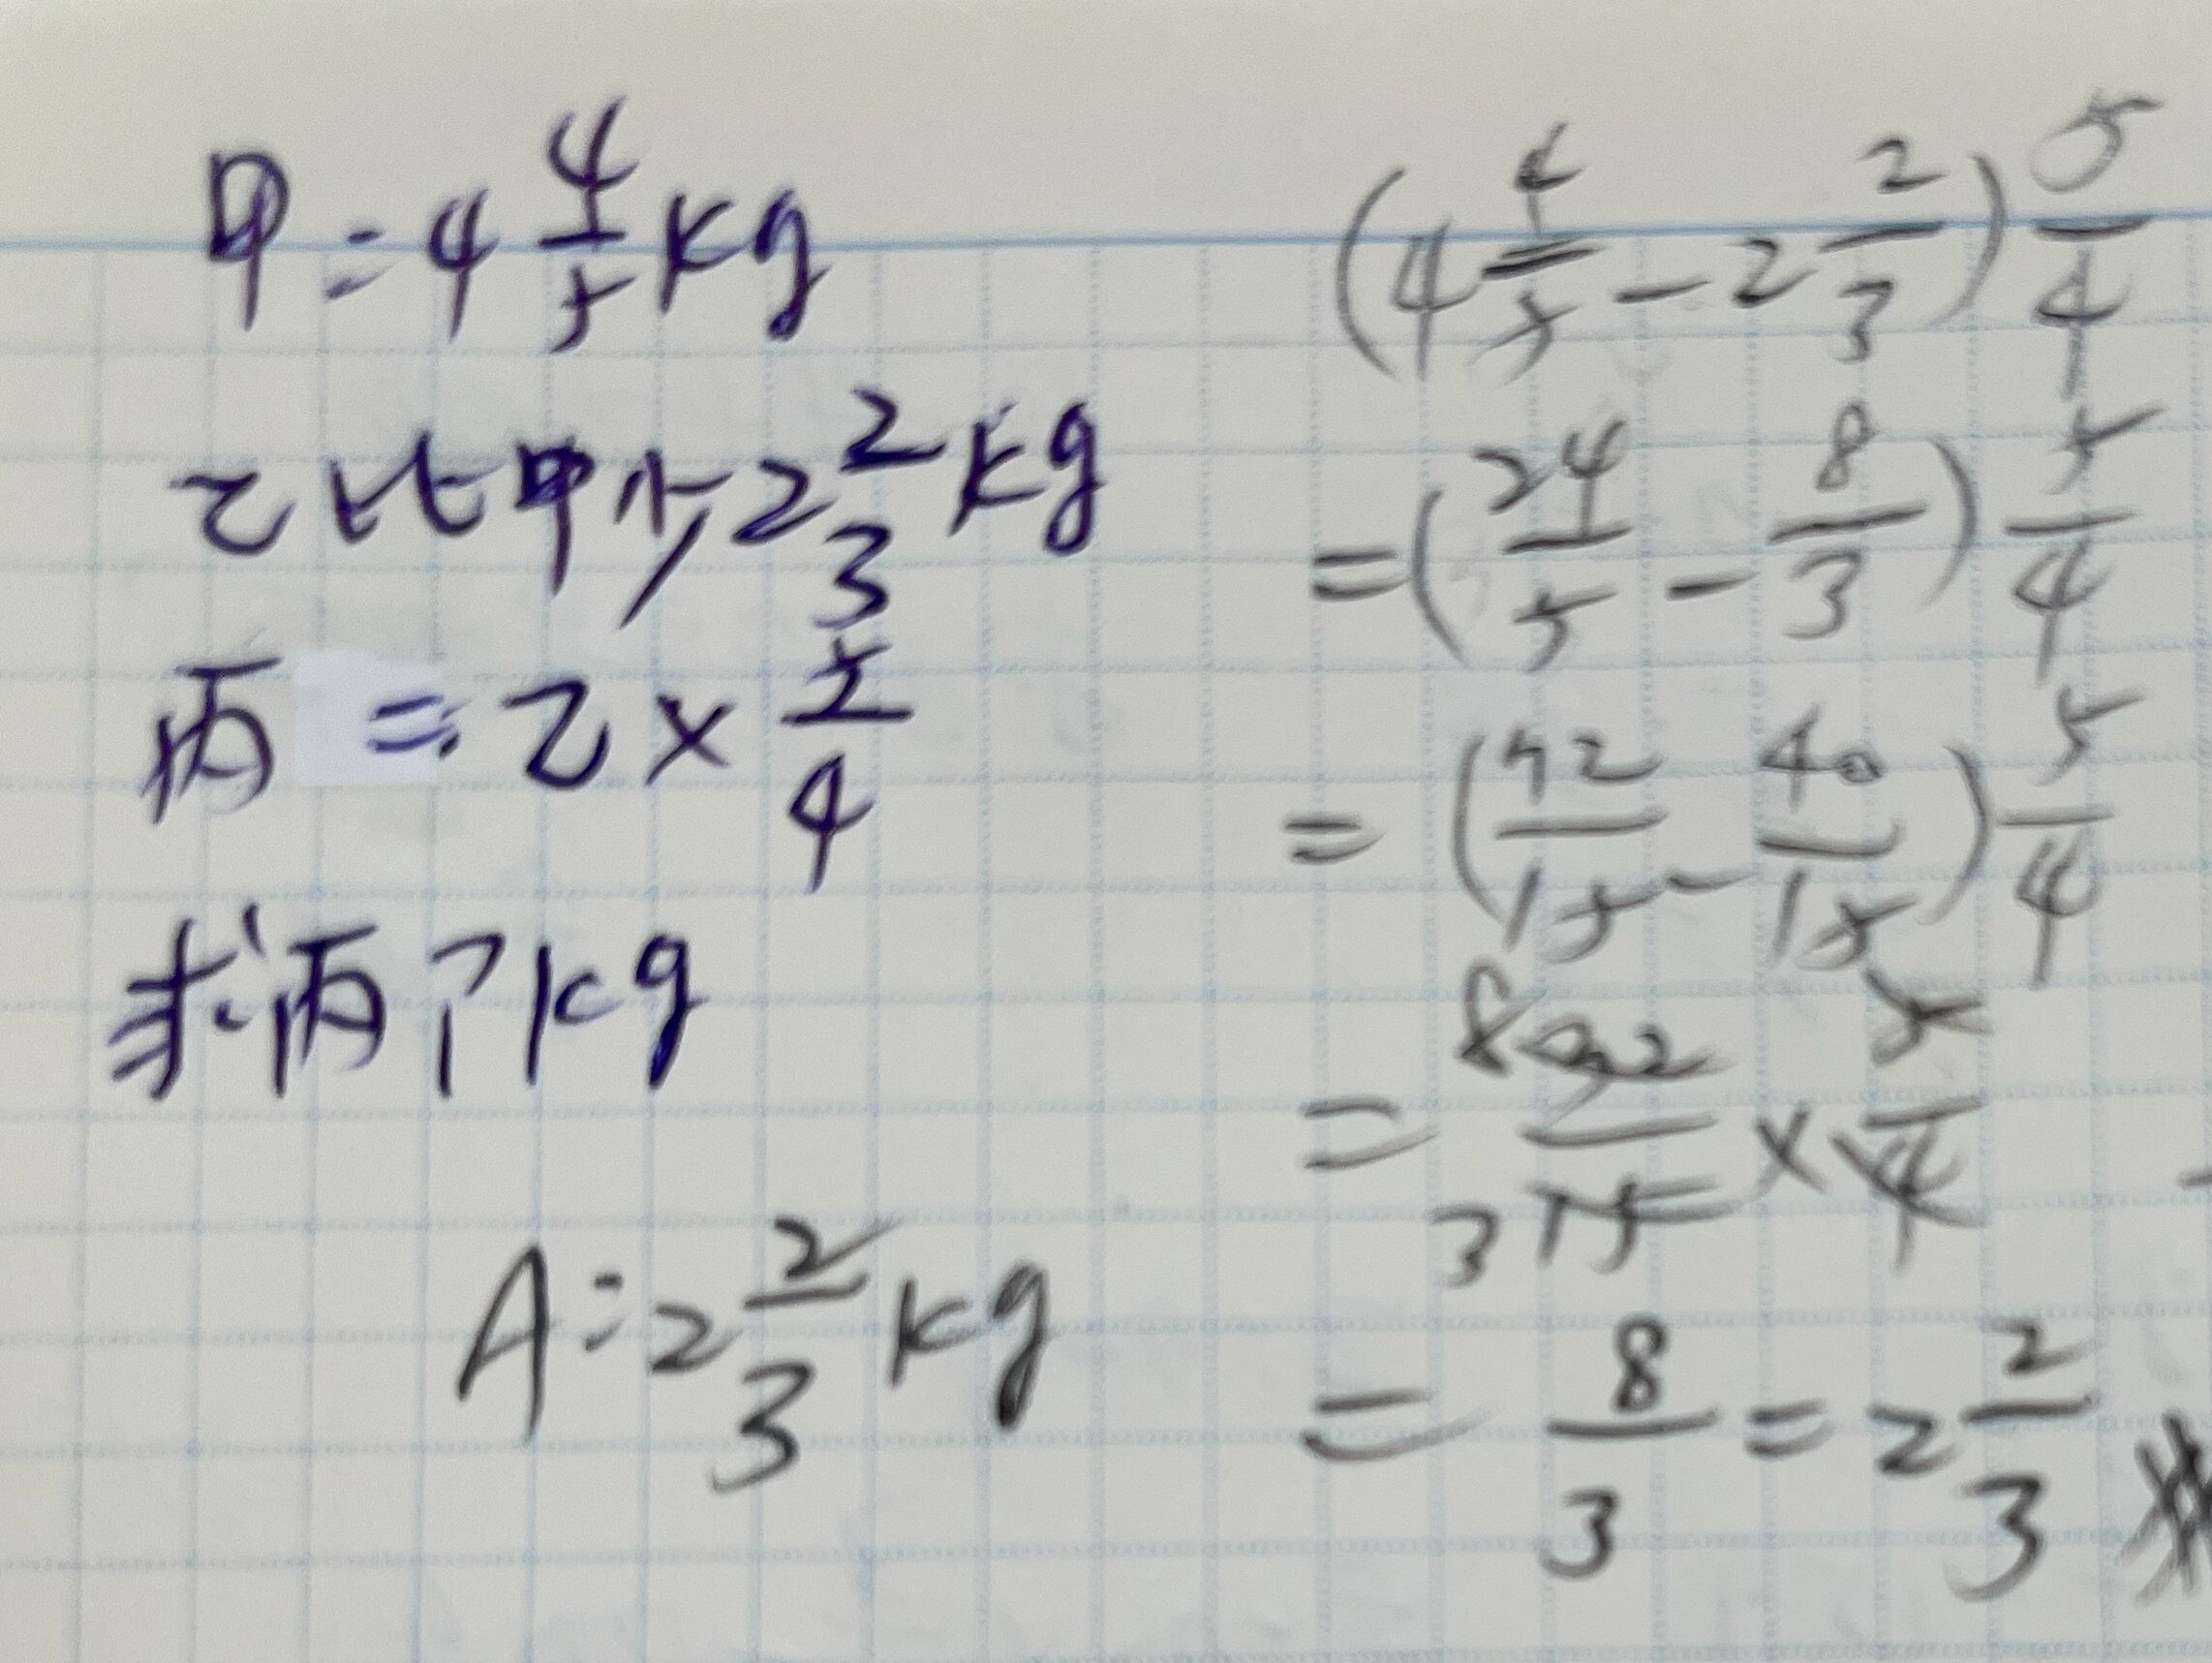 甲=4 4/5 kg
乙比甲少2 2/3 kg
丙 = 乙 × 5/4
求丙?kg
A:2 2/3 kg
(4 4/5 - 2 2/3) 5/4
=(24/5 - 8/3) 5/4
=(72/15 - 40/15) 5/4
= 32/15 × 5/4
8
3
= 8/3 = 2 2/3